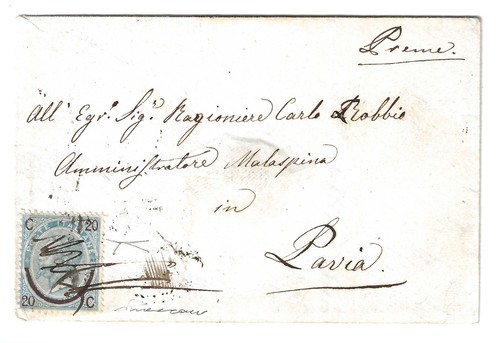 Preme.
All' Egr.º Sig.º Ragioniere Carlo Robbio
Amministratore Malaspina
in
Pavia.
C 20
20 C